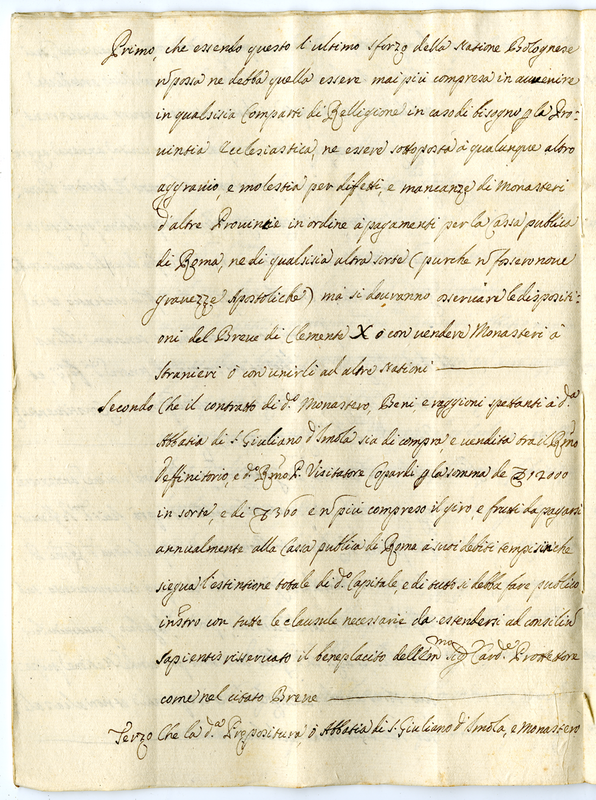 Primo, che essendo questo l'ultimo sforzo della Natione Bolognese
ñ possa ne debba quella essere mai più compresa in auuenire
in qualsisia Comparti di Relligione in caso di bisogno p la Pro-
uintia Ecclesiastica, ne essere sottoposta à qualunque altro
aggrauio, e molestia per diffetti, e mancanze di Monasteri
d'altre Prouincie in ordine à pagamenti per la Cassa publica
di Roma, ne di qualsisia altra sorte (purche ñ fossero noue
grauezze Apostoliche) mà si douranno osseruare le dispositi-
oni del Breue di Clemente X ò con vendere Monasteri à
stranieri ò con unirli ad altre Nationi
Secondo Che il contratto di d.º Monastero, Beni, e raggioni spettanti à d.ª
Abbatia di S. Giuliano d'Imola sia di compra, e vendita tra il Rmo
Deffinitorio, e d.º Rmo P. Visitatore Copardi p la somma de 12000
in sorte, e di 360 e ñ più compreso il giro, e frutti da pagarsi
annualmente alla Cassa publica di Roma à suoi debiti tempi sin che
siegua l'estintione totale di d.º Capitale, e di tutto si debba fare publico
instro con tutte le clausule necessarie da estendersi ad consiliũ
sapientis risseruato il beneplacito dell'Emmo Sig Card.e Protettore
come nel citato Breue
Terzo Che la d.ª Prepositura, ò Abbatia di S. Giuliano d'Imola, e Monastero